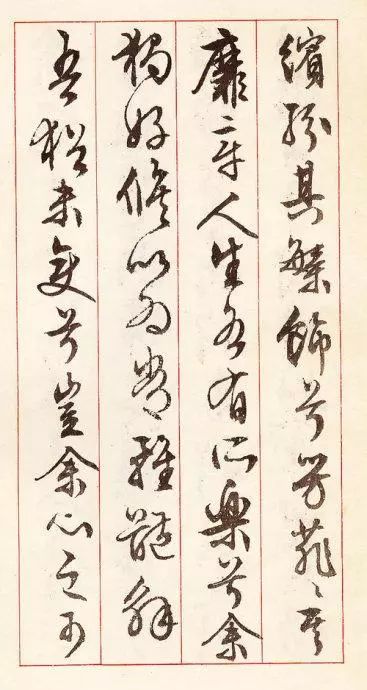 繽紛其繁飾兮芳菲〻其
靡章人生各有所樂兮余
獨好脩以為常雖體解
吾猶未變兮豈余心之可